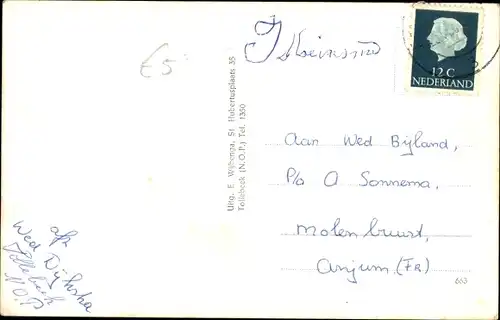 £5
12 C
NEDERLAND
Uitg. E. Wijbenga, St Hubertusplaats 35
Tollebeek (N.O.P.) Tel. 1350
Aan Wed Bijland,
P/a A Sonnema,
molen buurt,
anjum. (FR)
afz
Wed Dijkstra
Tollebeek
N.O.P
663